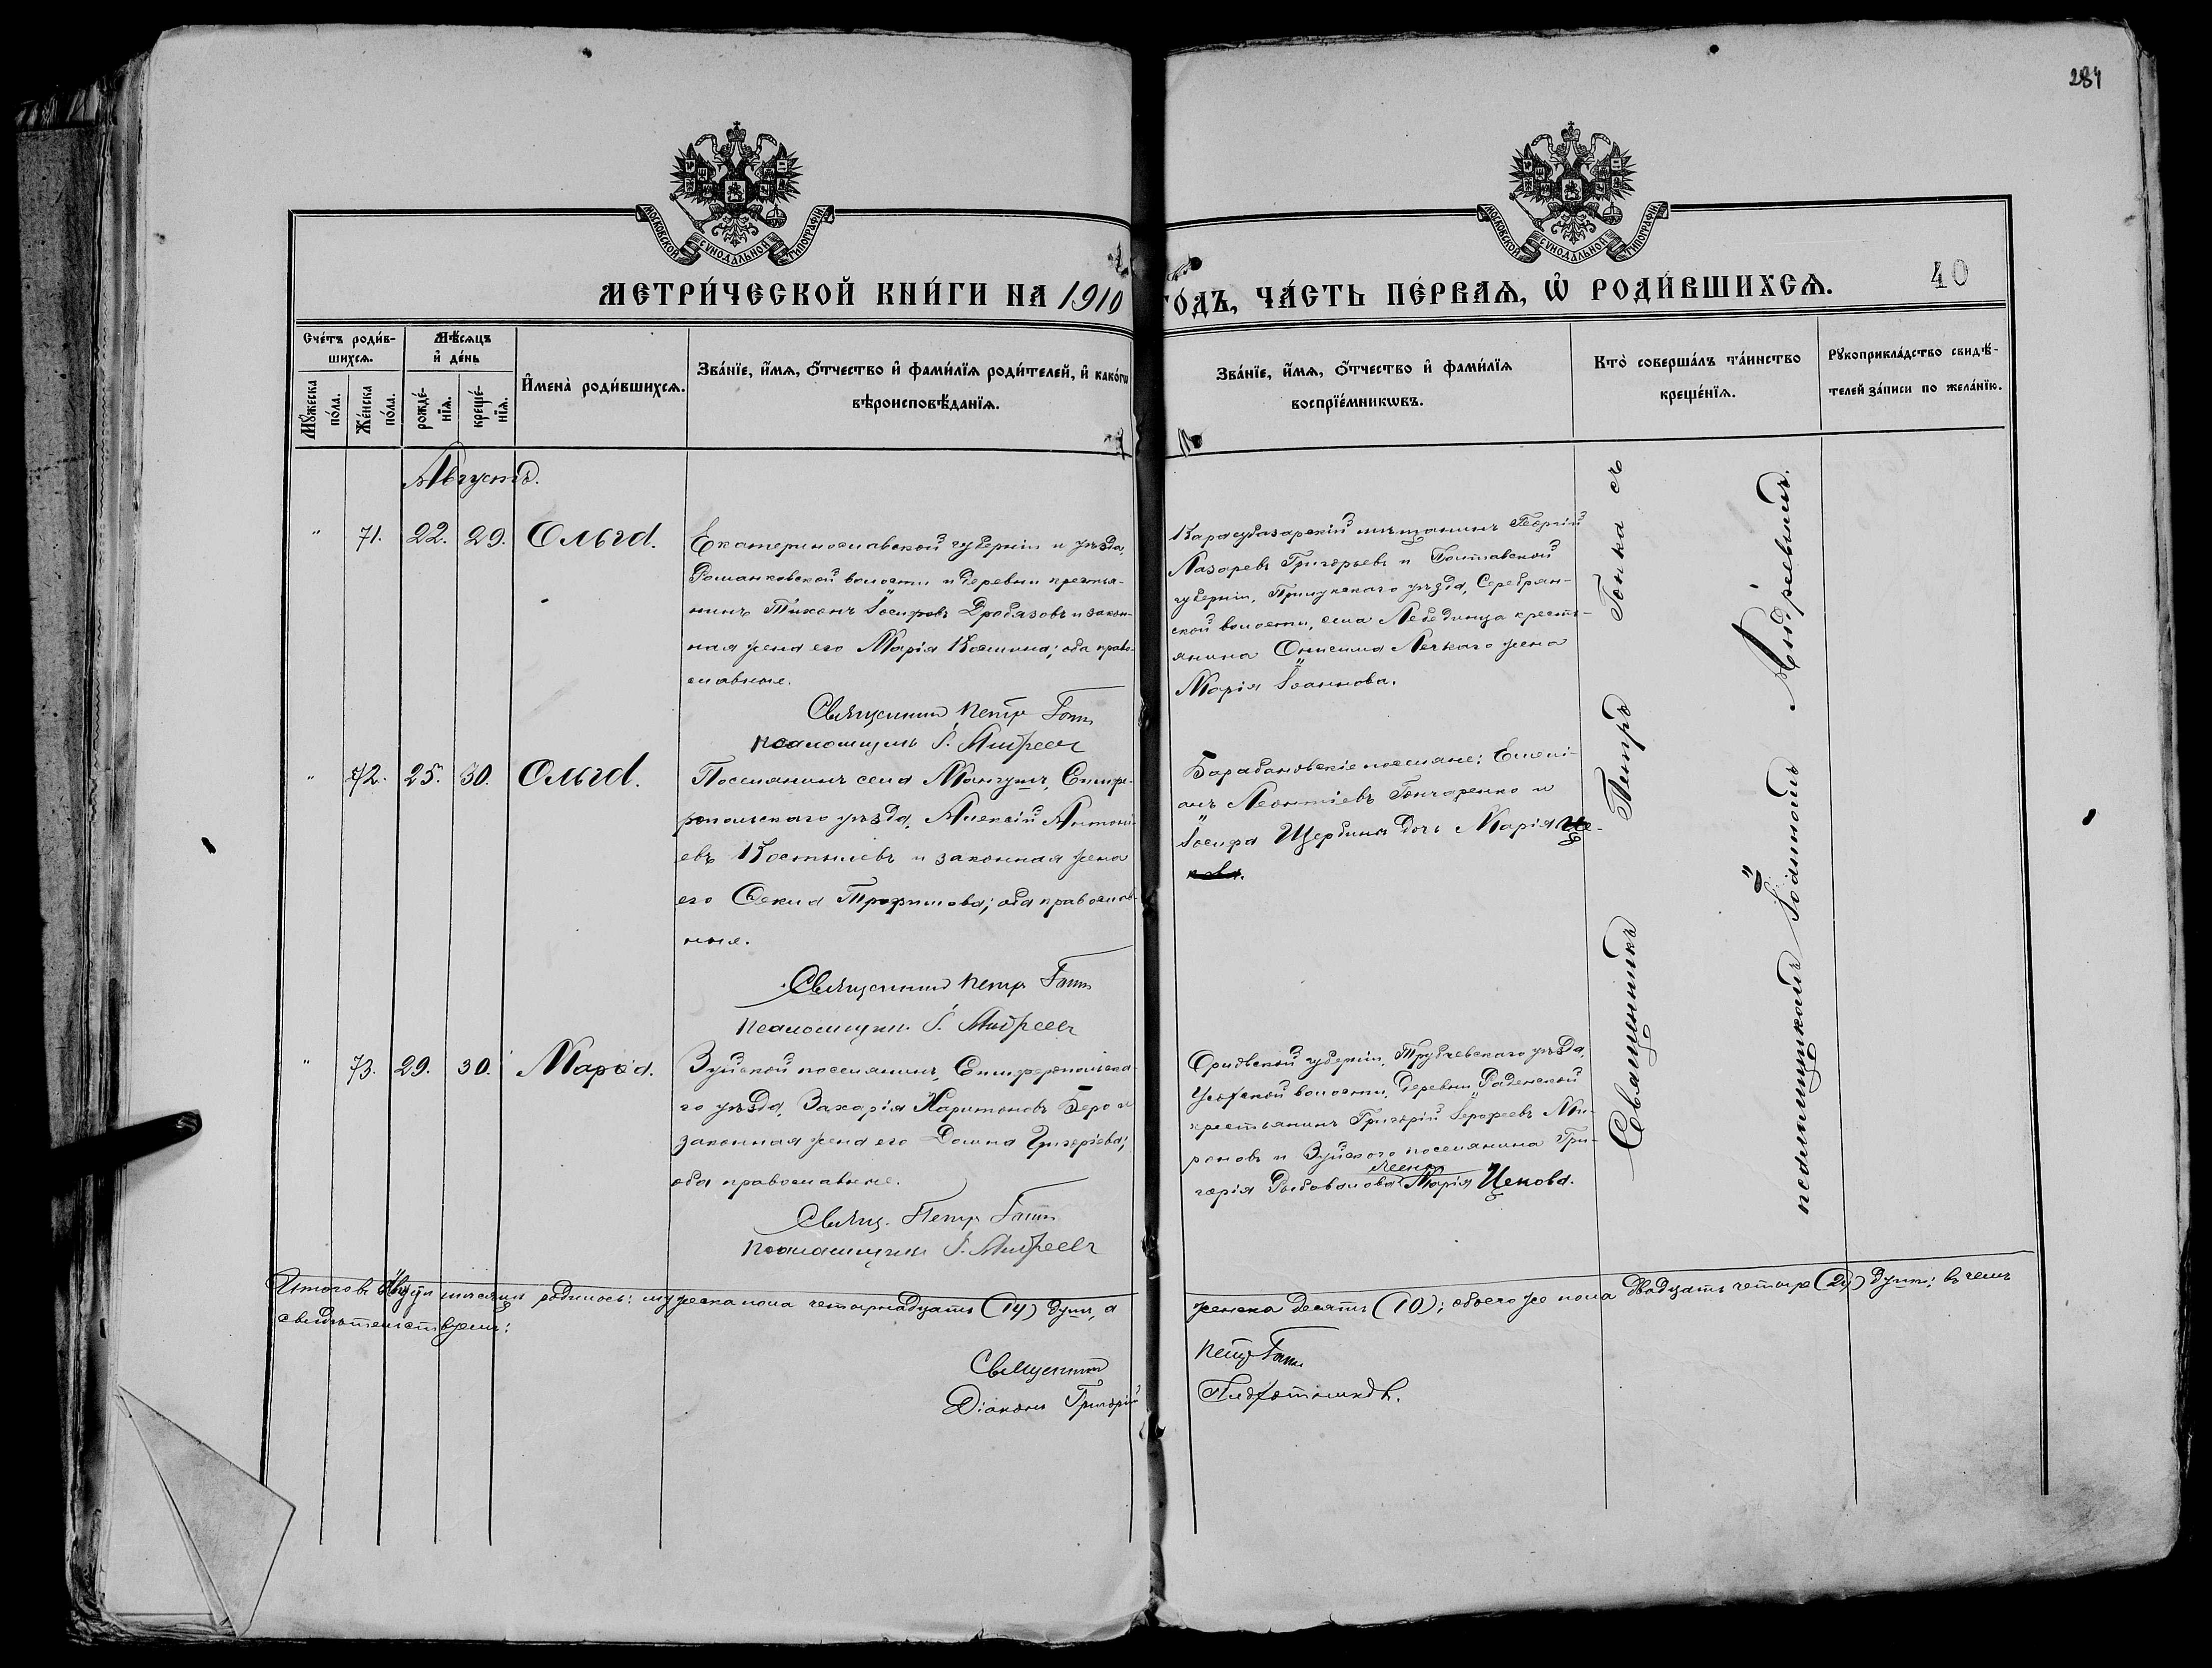 284
МОСКОВСКОЙ СѴНОДАЛЬНОЙ ТИПОГРАФІИ
МОСКОВСКОЙ СѴНОДАЛЬНОЙ ТИПОГРАФІИ
МЕТРИ́ЧЕСКОЙ КНИ́ГИ НА 1910 ГО́ДЪ, ЧА́СТЬ ПЕ́РВАѦ, Ѡ҆ РОДИ́ВШИХСѦ.
40
Сче́тъ роди́в-
шихсѧ.
Мꙋ́жеска
по́ла.
Же́нска
по́ла.
Мѣ́сѧцъ
и҆ де́нь
рожде́-
нїѧ.
креще́-
нїѧ.
И҆мена̀ роди́вшихсѧ.
Зва́нїе, и҆́мѧ, ѻ҆́тчество и҆ фами́лїѧ роди́телей, и҆ како́гѡ
вѣроисповѣ́данїѧ.
Зва́нїе, и҆́мѧ, ѻ҆́тчество и҆ фами́лїѧ
воспрїе́мникѡвъ.
Кто̀ соверша́лъ та́инство
креще́нїѧ.
Рꙋкоприкла́дство свидѣ́-
телей за́писи по жела́нїю.
Августъ.
" 71. 22. 29. Ольга.
Екатеринославской губерніи и уѣзда,
Романковской волости и деревни крестья-
нинъ Тихонъ Іосифовъ Дробязовъ и закон-
ная жена его Марія Козмина; оба право-
славные.
Священникъ Петръ
Псаломщикъ І. Андреевъ
Карасубазарскій мѣщанинъ Георгій
Лазаревъ Григорьевъ и Полтавской
губерніи, Прилукскаго уѣзда, Серебрян-
ской волости, села Лебединца кресть-
янина Онисима Легкаго жена
Марія Іоаннова.
" 72. 25. 30. Ольга.
Поселянинъ села Мангушъ, Симфе-
ропольскаго уѣзда, Алексій Антоні-
евъ Костылевъ и законная жена
его Фекла Трофимова; оба православ-
ные.
Священникъ Петръ
Псаломщикъ І. Андреевъ
Барабановскіе поселяне: Емелі-
анъ Леонтіевъ Гончаренко и
Іосифа Щербины дочь Марія
" 73. 29. 30. Марія.
Зуйской поселянинъ, Симферопольска-
го уѣзда, Захарія Харитоновъ Беро и
законная жена его Домна Григоріева;
оба православные.
Свящ. Петръ
Псаломщикъ І. Андреевъ
Орловской губерніи, Трубчевскаго уѣзда,
волости, деревни
крестьянинъ Григорій Іерофеевъ Ми-
роновъ и Зуйскаго поселянина Гри-
горія жена Марія Цекова.
Священникъ Петръ Гонка съ
псаломщикомъ Іоанномъ Андреевымъ.
Итого въ Августѣ мѣсяцѣ родилось: мужеска пола четырнадцать (14) душъ, а женска десять (10); обоего же пола двадцать четыре (24) душъ; въ чемъ
свидѣтельствуемъ:
Священникъ Петръ
Діаконъ Григорій